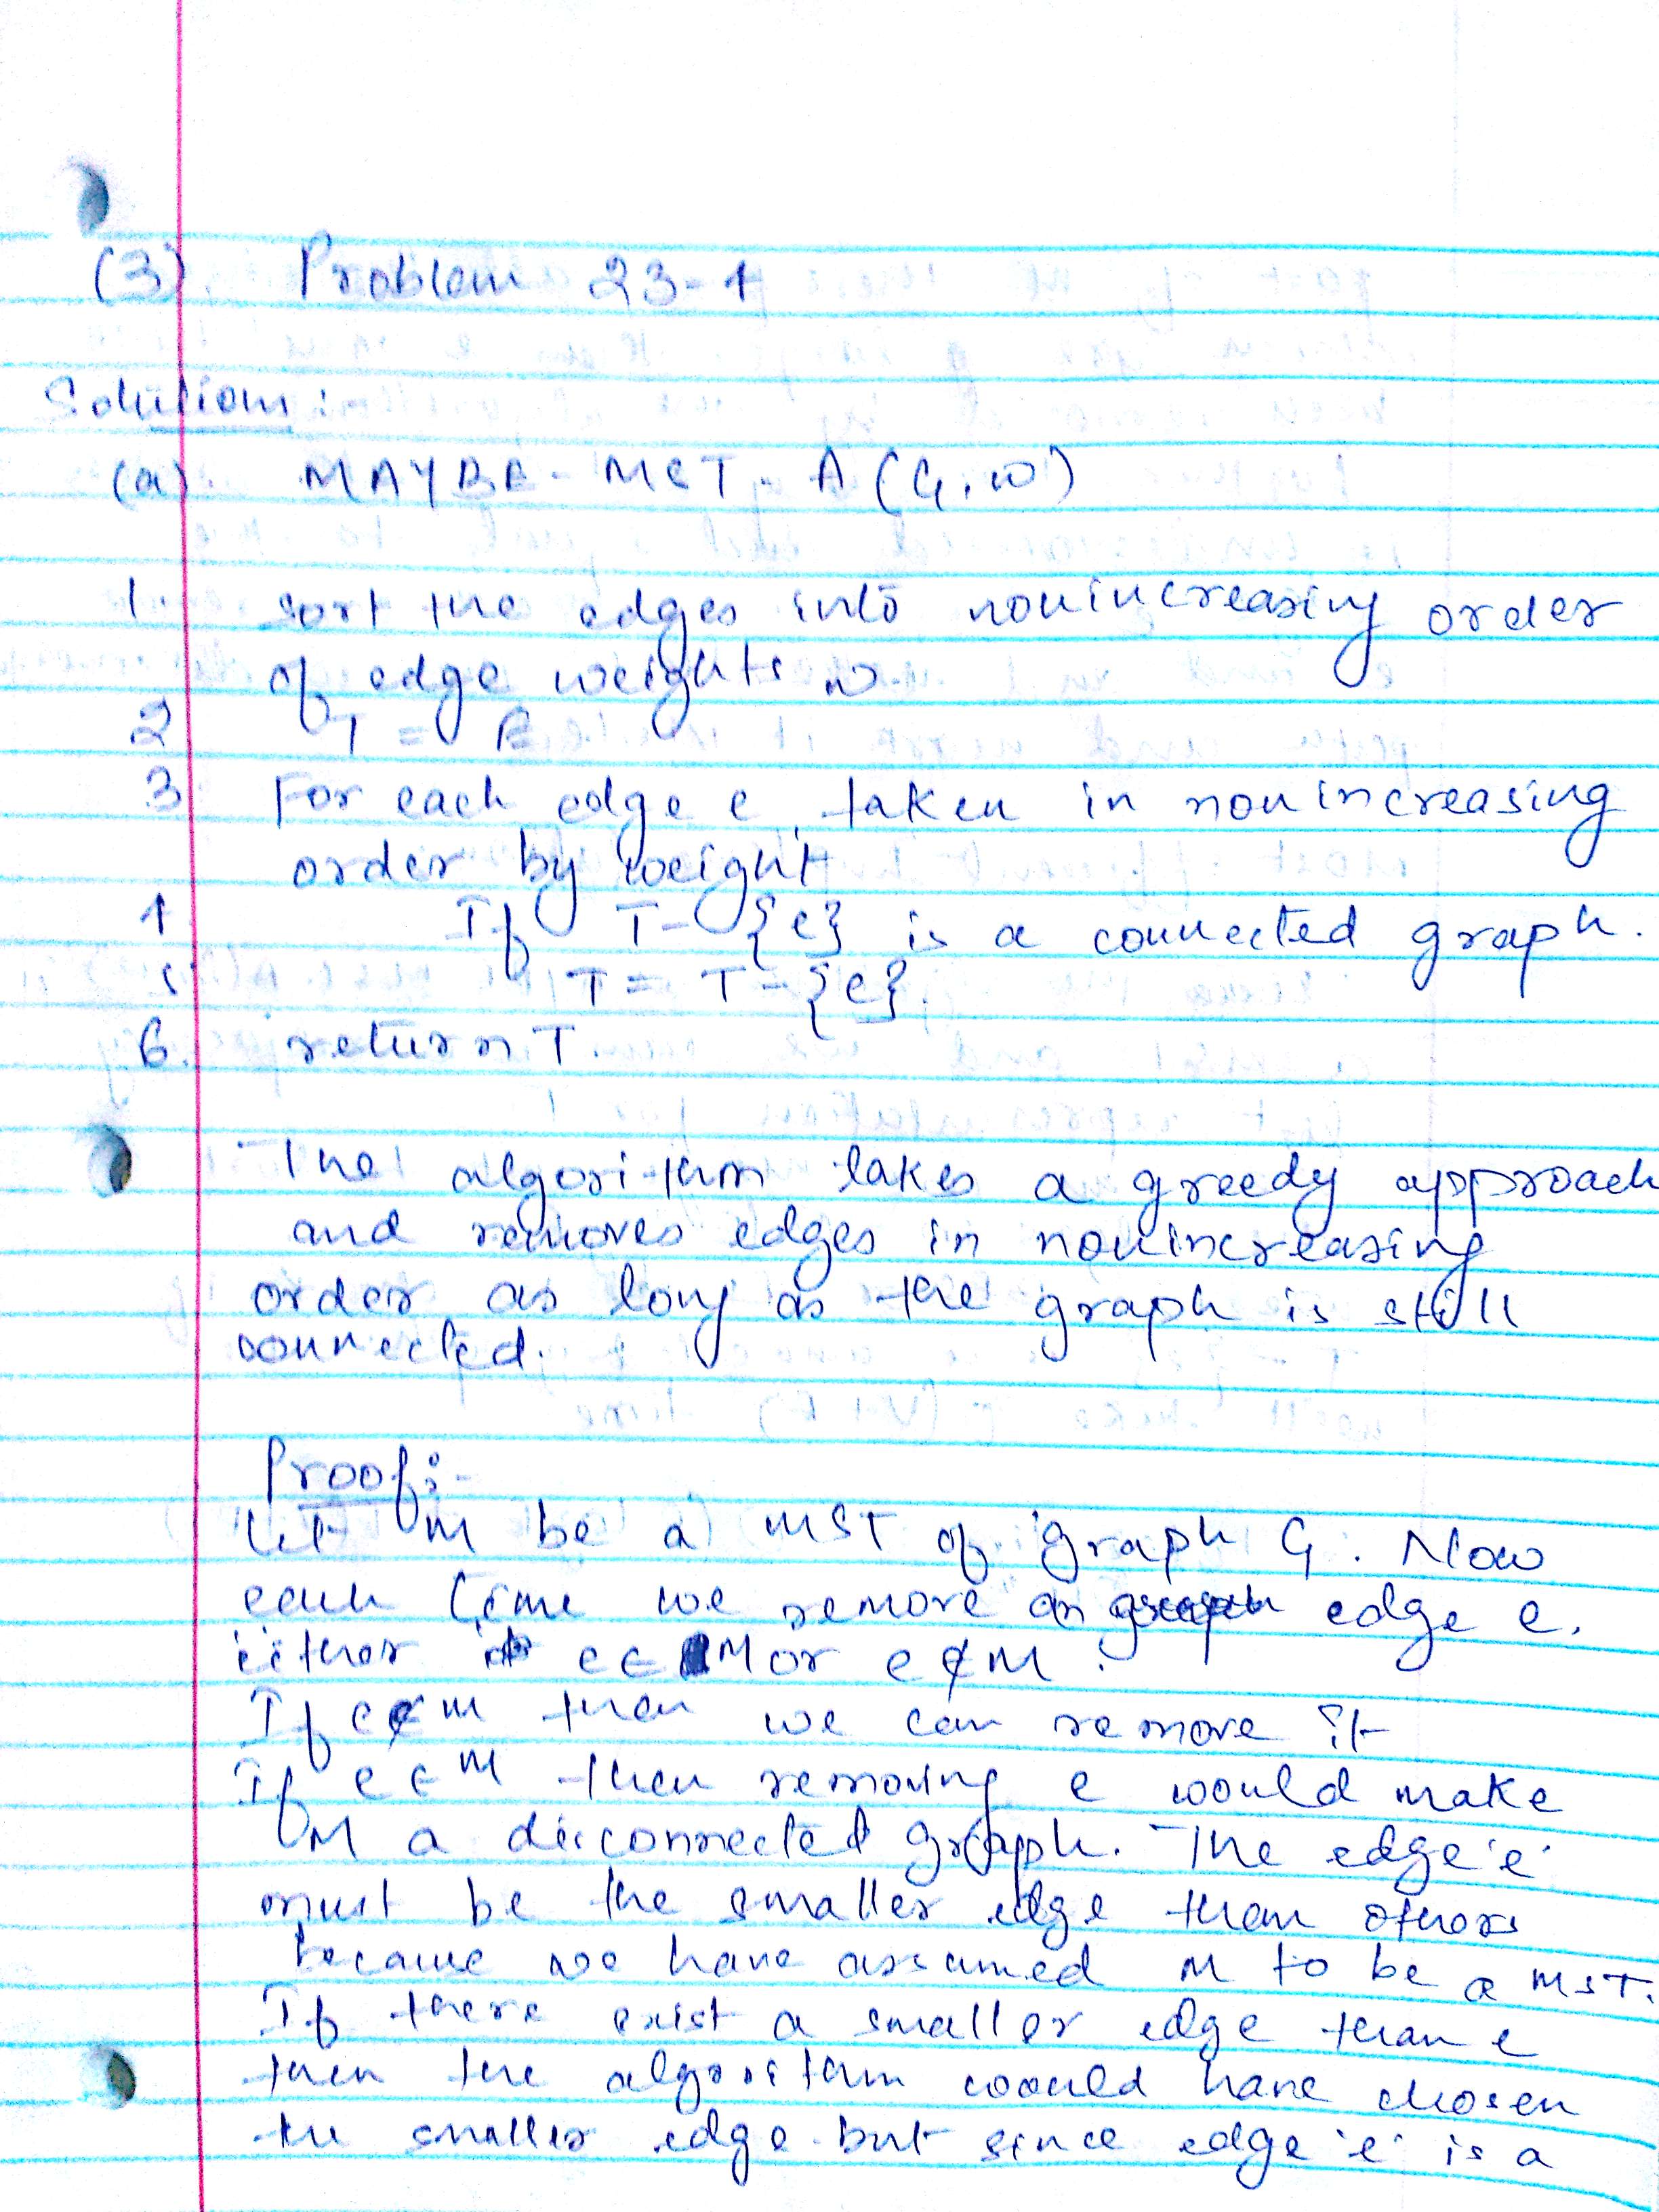 (3) Problem 23-4
Solution:
(a) MAYBE-MST-A(G,w)
1. sort the edges into nonincreasing order
of edge weights w
2 T = E
3 For each edge e, taken in nonincreasing
order by weight
4 If T-{e} is a connected graph.
5 T = T-{e}.
6. return T.
The algorithm takes a greedy approach
and removes edges in nonincreasing
order as long as the graph is still
connected.
Proof:-
Let M be a MST of graph G. Now
each time we remove an edge e.
either e∈M or e∉M.
If e∉M then we can remove it
If e∈M then removing e would make
M a disconnected graph. The edge 'e'
must be the smaller edge than others
because we have assumed M to be a MST.
If there exist a smaller edge than e
then the algorithm would have chosen
the smaller edge but since edge 'e' is a